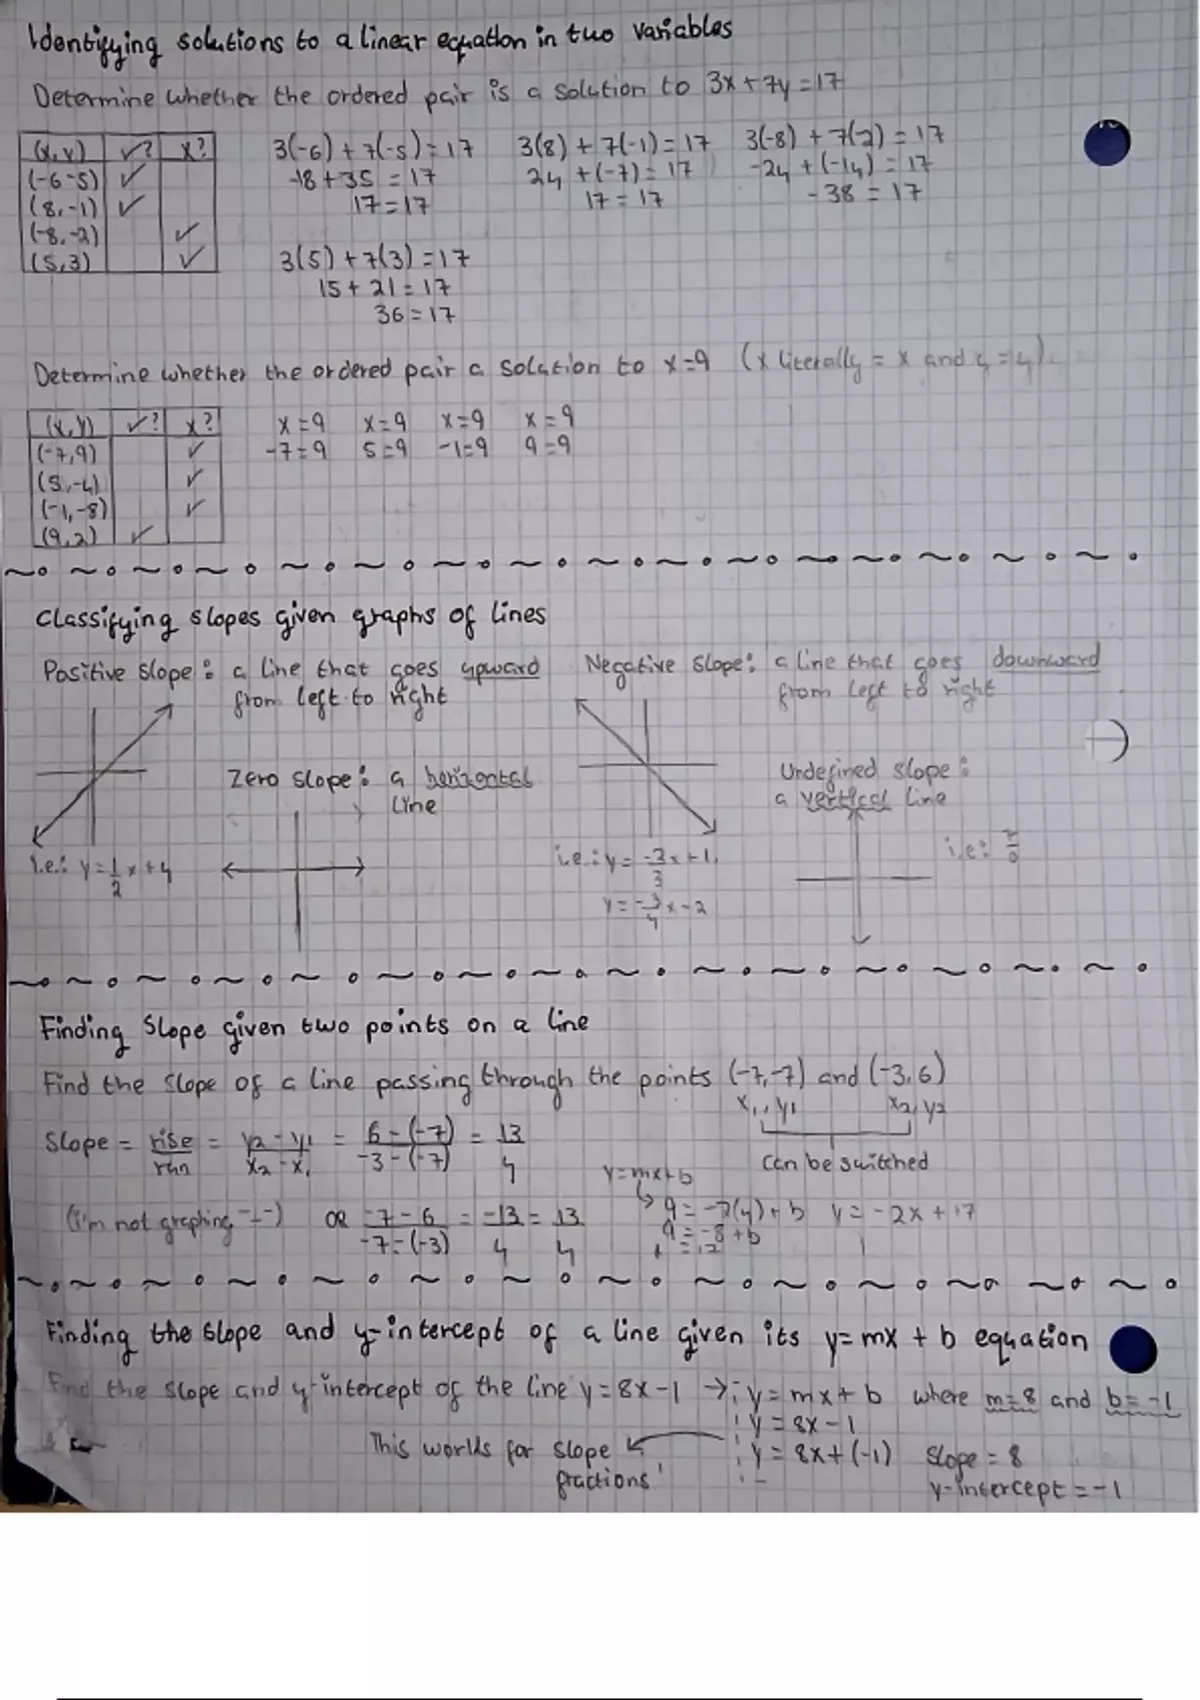 Identifying solutions to a linear equation in two variables
Determine whether the ordered pair is a solution to 3x+7y=17
(x,y) ✓? x?
(-6-5) ✓
(8,-1) ✓
(-8,-2) ✓
(5,3) ✓
3(-6)+7(-5)=17
-18+35=17
17=17
3(8)+7(-1)=17
24+(-7)=17
17=17
3(-8)+7(-2)=17
-24+(-14)=17
-38=17
3(5)+7(3)=17
15+21=17
36=17
Determine whether the ordered pair a solution to x=9 (x literally = x and y=y)
(x,y) ✓? x?
(-7,9) ✓
(5,-4) ✓
(-1,-8) ✓
(9,2) ✓
x=9 x=9 x=9 x=9
-7=9 5=9 -1=9 9=9
Classifying slopes given graphs of lines
Positive slope: a line that goes upward
from left to right
Negative slope: a line that goes downward
from left to right
Zero slope: a horizontal
line
Undefined slope:
a vertical line
i.e.: y=1/2x+4
i.e.: y=-2/3x+1,
y=-3/4x-2
i.e:
Finding slope given two points on a line
Find the slope of a line passing through the points (-7,-7) and (-3,6)
x1,y1 x2,y2
can be switched
Slope = rise/run = y2-y1/x2-x1 = 6-(-7)/-3-(-7) = 13/4
(I'm not graphing -_-) OR -7-6/-7-(-3) = -13/4 = 13/4
y=mx+b
9=-2(4)+b y=-2x+17
9=-8+b
Finding the slope and y-intercept of a line given its y=mx+b equation
Find the slope and y-intercept of the line y=8x-1 → y=mx+b where m=8 and b=-1
y=8x-1
This works for slope
fractions!
y=8x+(-1) Slope=8
y-intercept=-1